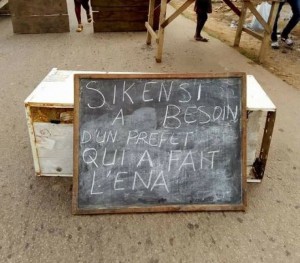 SIKENSI
A BESOIN
D'UN PREFET
QUI A FAIT
L'ENA